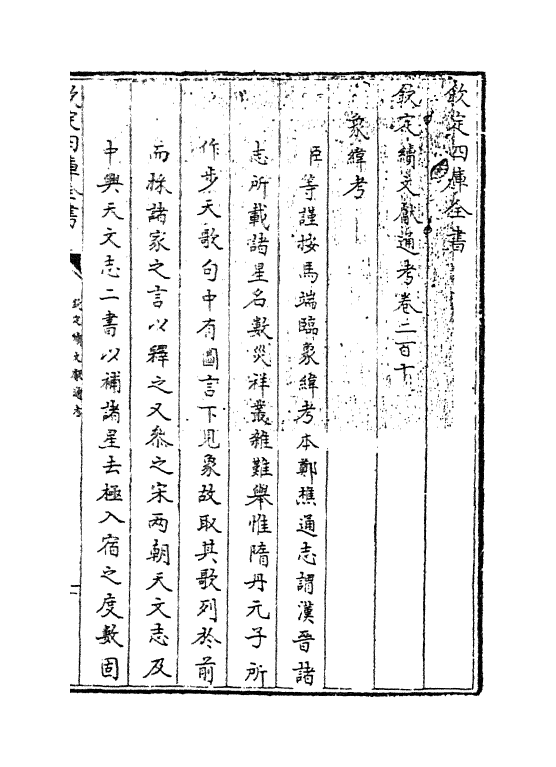 欽定四庫全書
欽定續文獻通考卷二百十
象緯考
臣等謹按馬端臨象緯考本鄭樵通志謂漢晉諸
志所載諸星名數災祥叢雜難舉惟隋丹元子所
作步天歌句中有圖言下見象故取其歌列於前
而採諸家之言以釋之又參之宋兩朝天文志及
中興天文志二書以補諸星去極入宿之度數固
欽定四庫全書
欽定續文獻通考